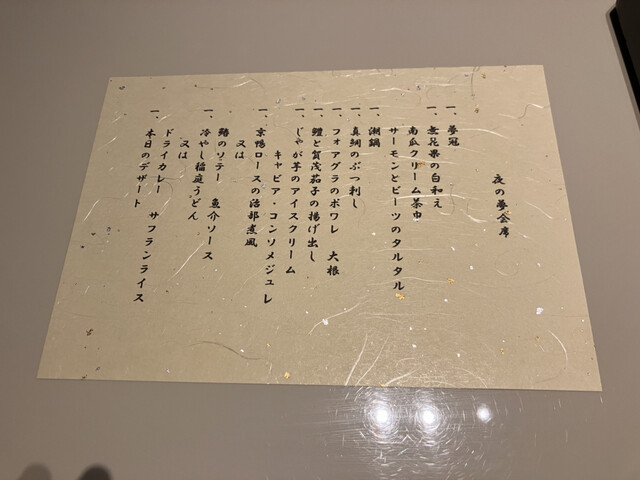 夜の夢会席
一、夢冠
一、無花果の白和え
南瓜クリーム茶巾
サーモンとビーツのタルタル
一、潮鍋
一、真鯛のぶつ刺し
一、フォアグラのポワレ 大根
一、鱧と賀茂茄子の揚げ出し
一、じゃが芋のアイスクリーム
キャビア・コンソメジュレ
一、京鴨ロースの治部煮風
又は
鰆のソテー 魚介ソース
一、冷やし稲庭うどん
又は
ドライカレー サフランライス
一、本日のデザート